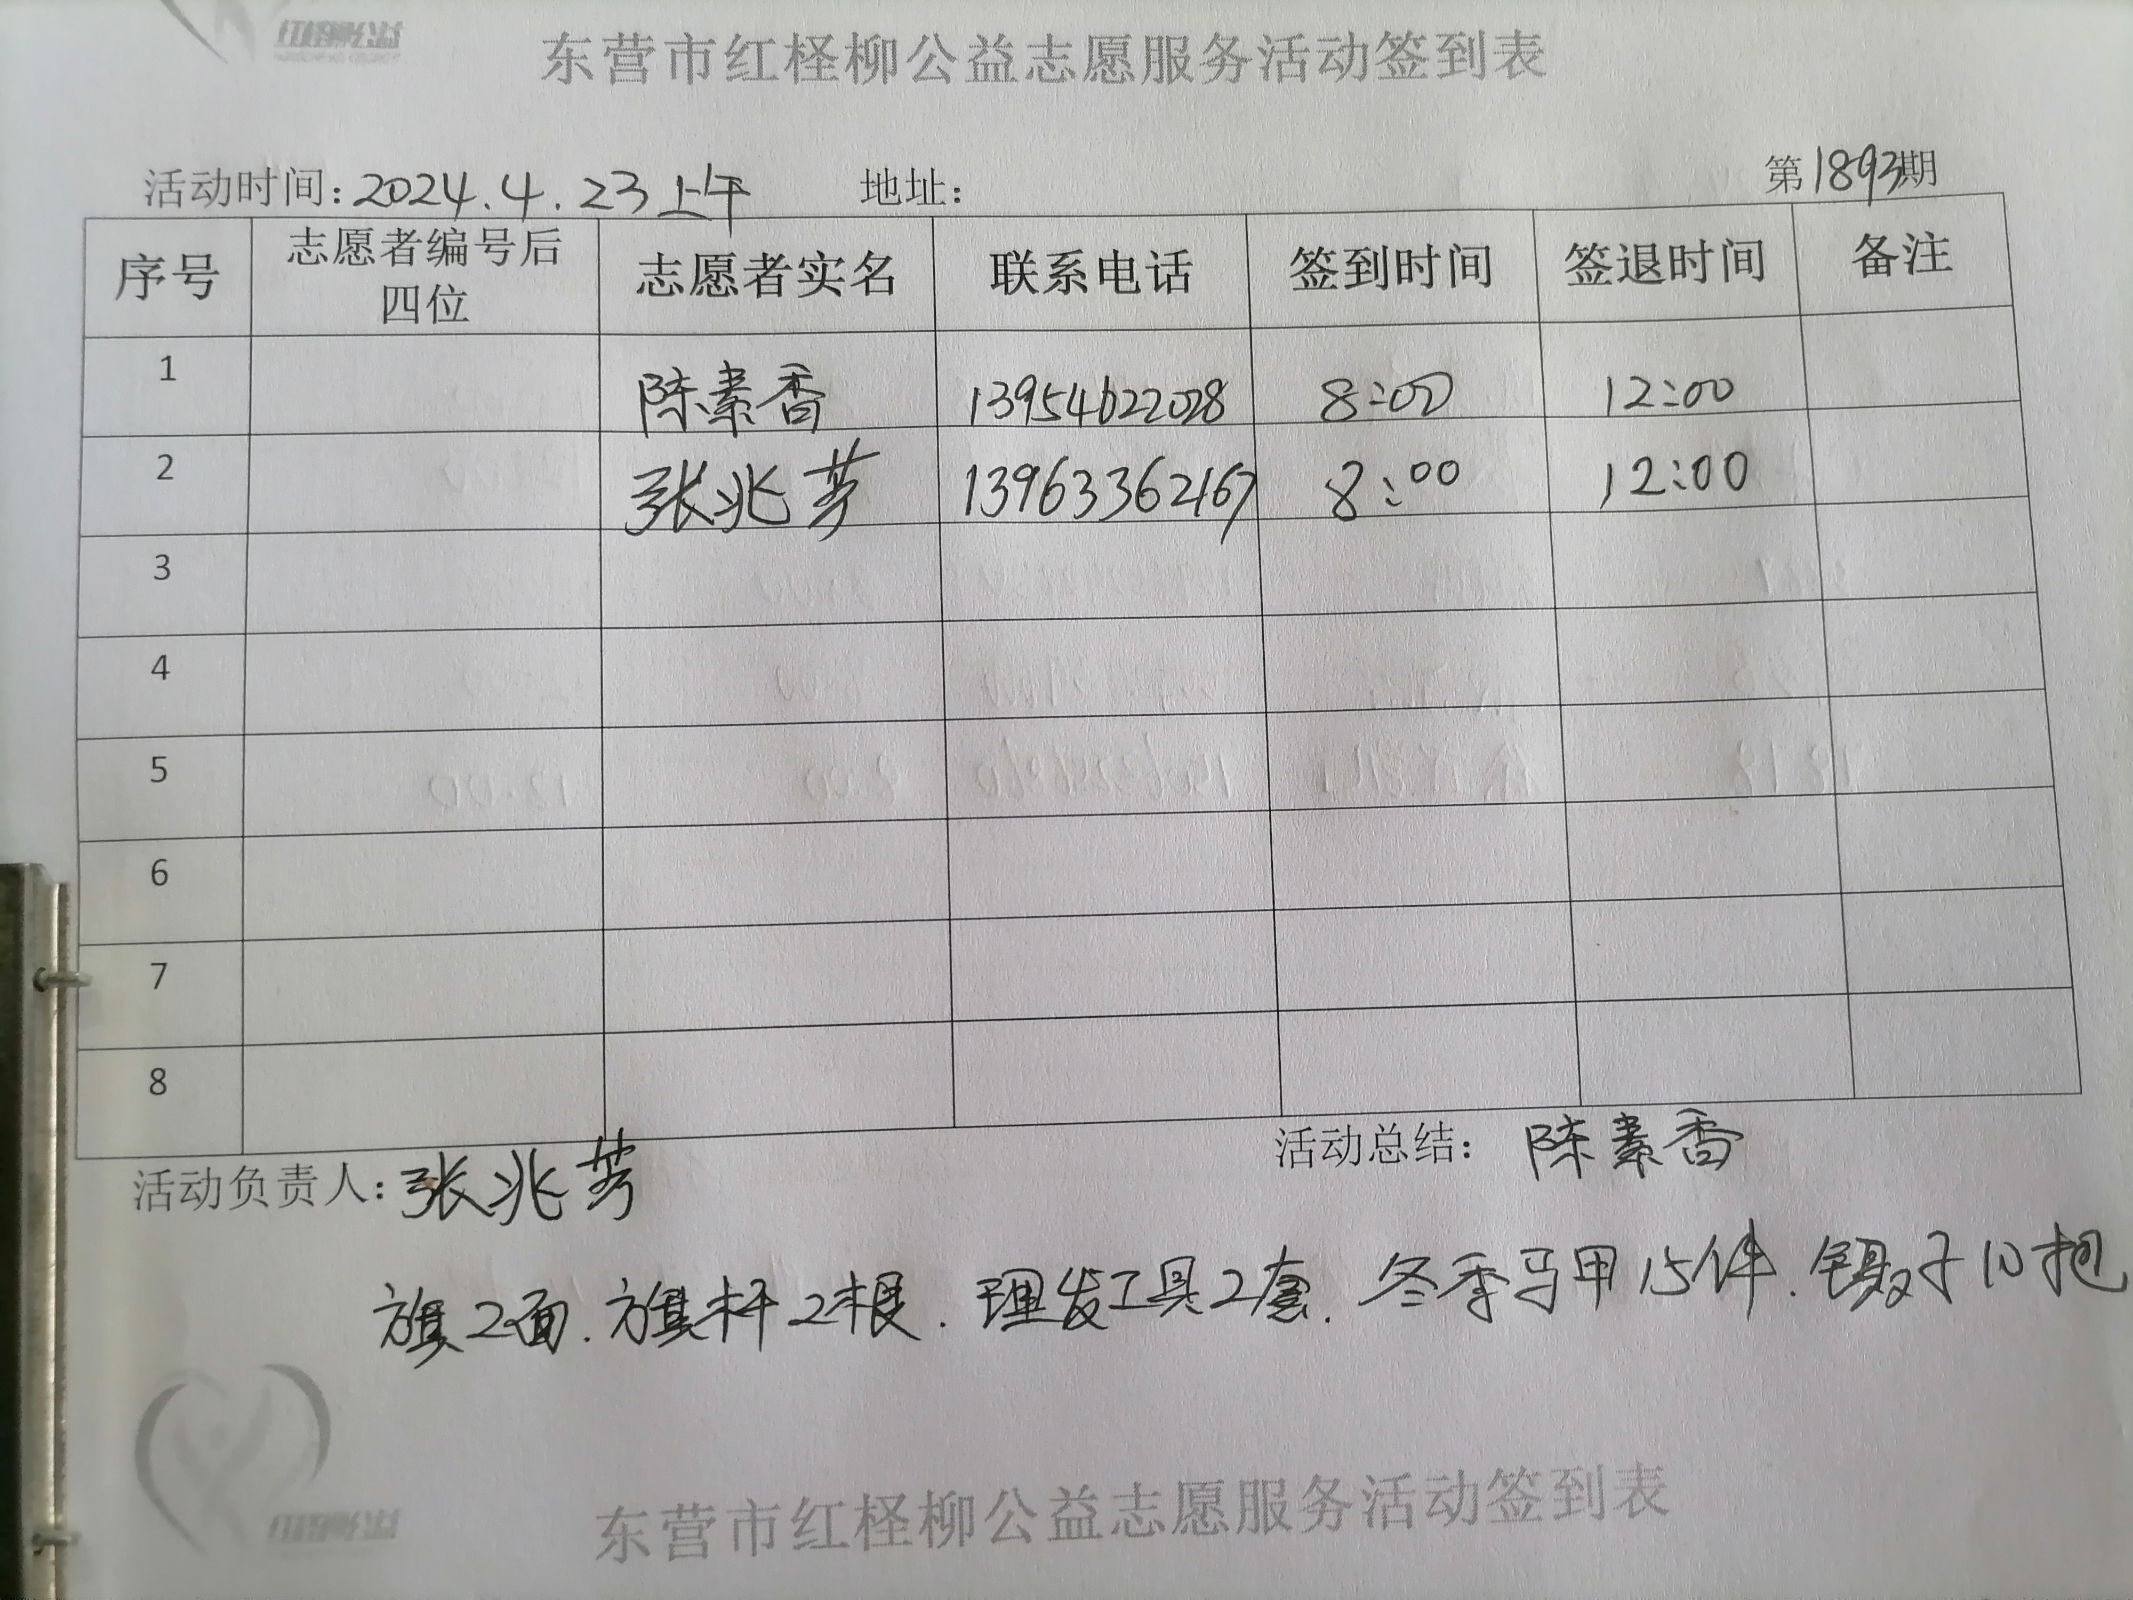 红柽柳公益
东营市红柽柳公益志愿服务活动签到表
活动时间:2024.4.23上午 地址: 第1893期
序号 志愿者编号后四位 志愿者实名 联系电话 签到时间 签退时间 备注
1 陈素香 13954622028 8:00 12:00
2 张兆芳 13963362167 8:00 12:00
3
4
5
6
7
8
活动负责人:张兆芳 活动总结: 陈素香
旗2面.旗杆2根.理发工具2套.冬季马甲15件.镊子10把
红柽柳公益
东营市红柽柳公益志愿服务活动签到表